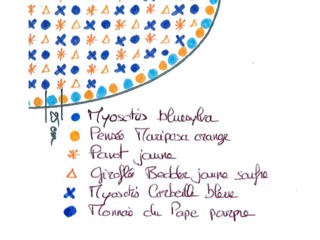 25 cm
Myosotis bluesylva
Pensée Mariposa orange
Pavot jaune
Giroflée Bedder jaune soufre
Myosotis Corbeille bleue
Monnaie du Pape pourpre